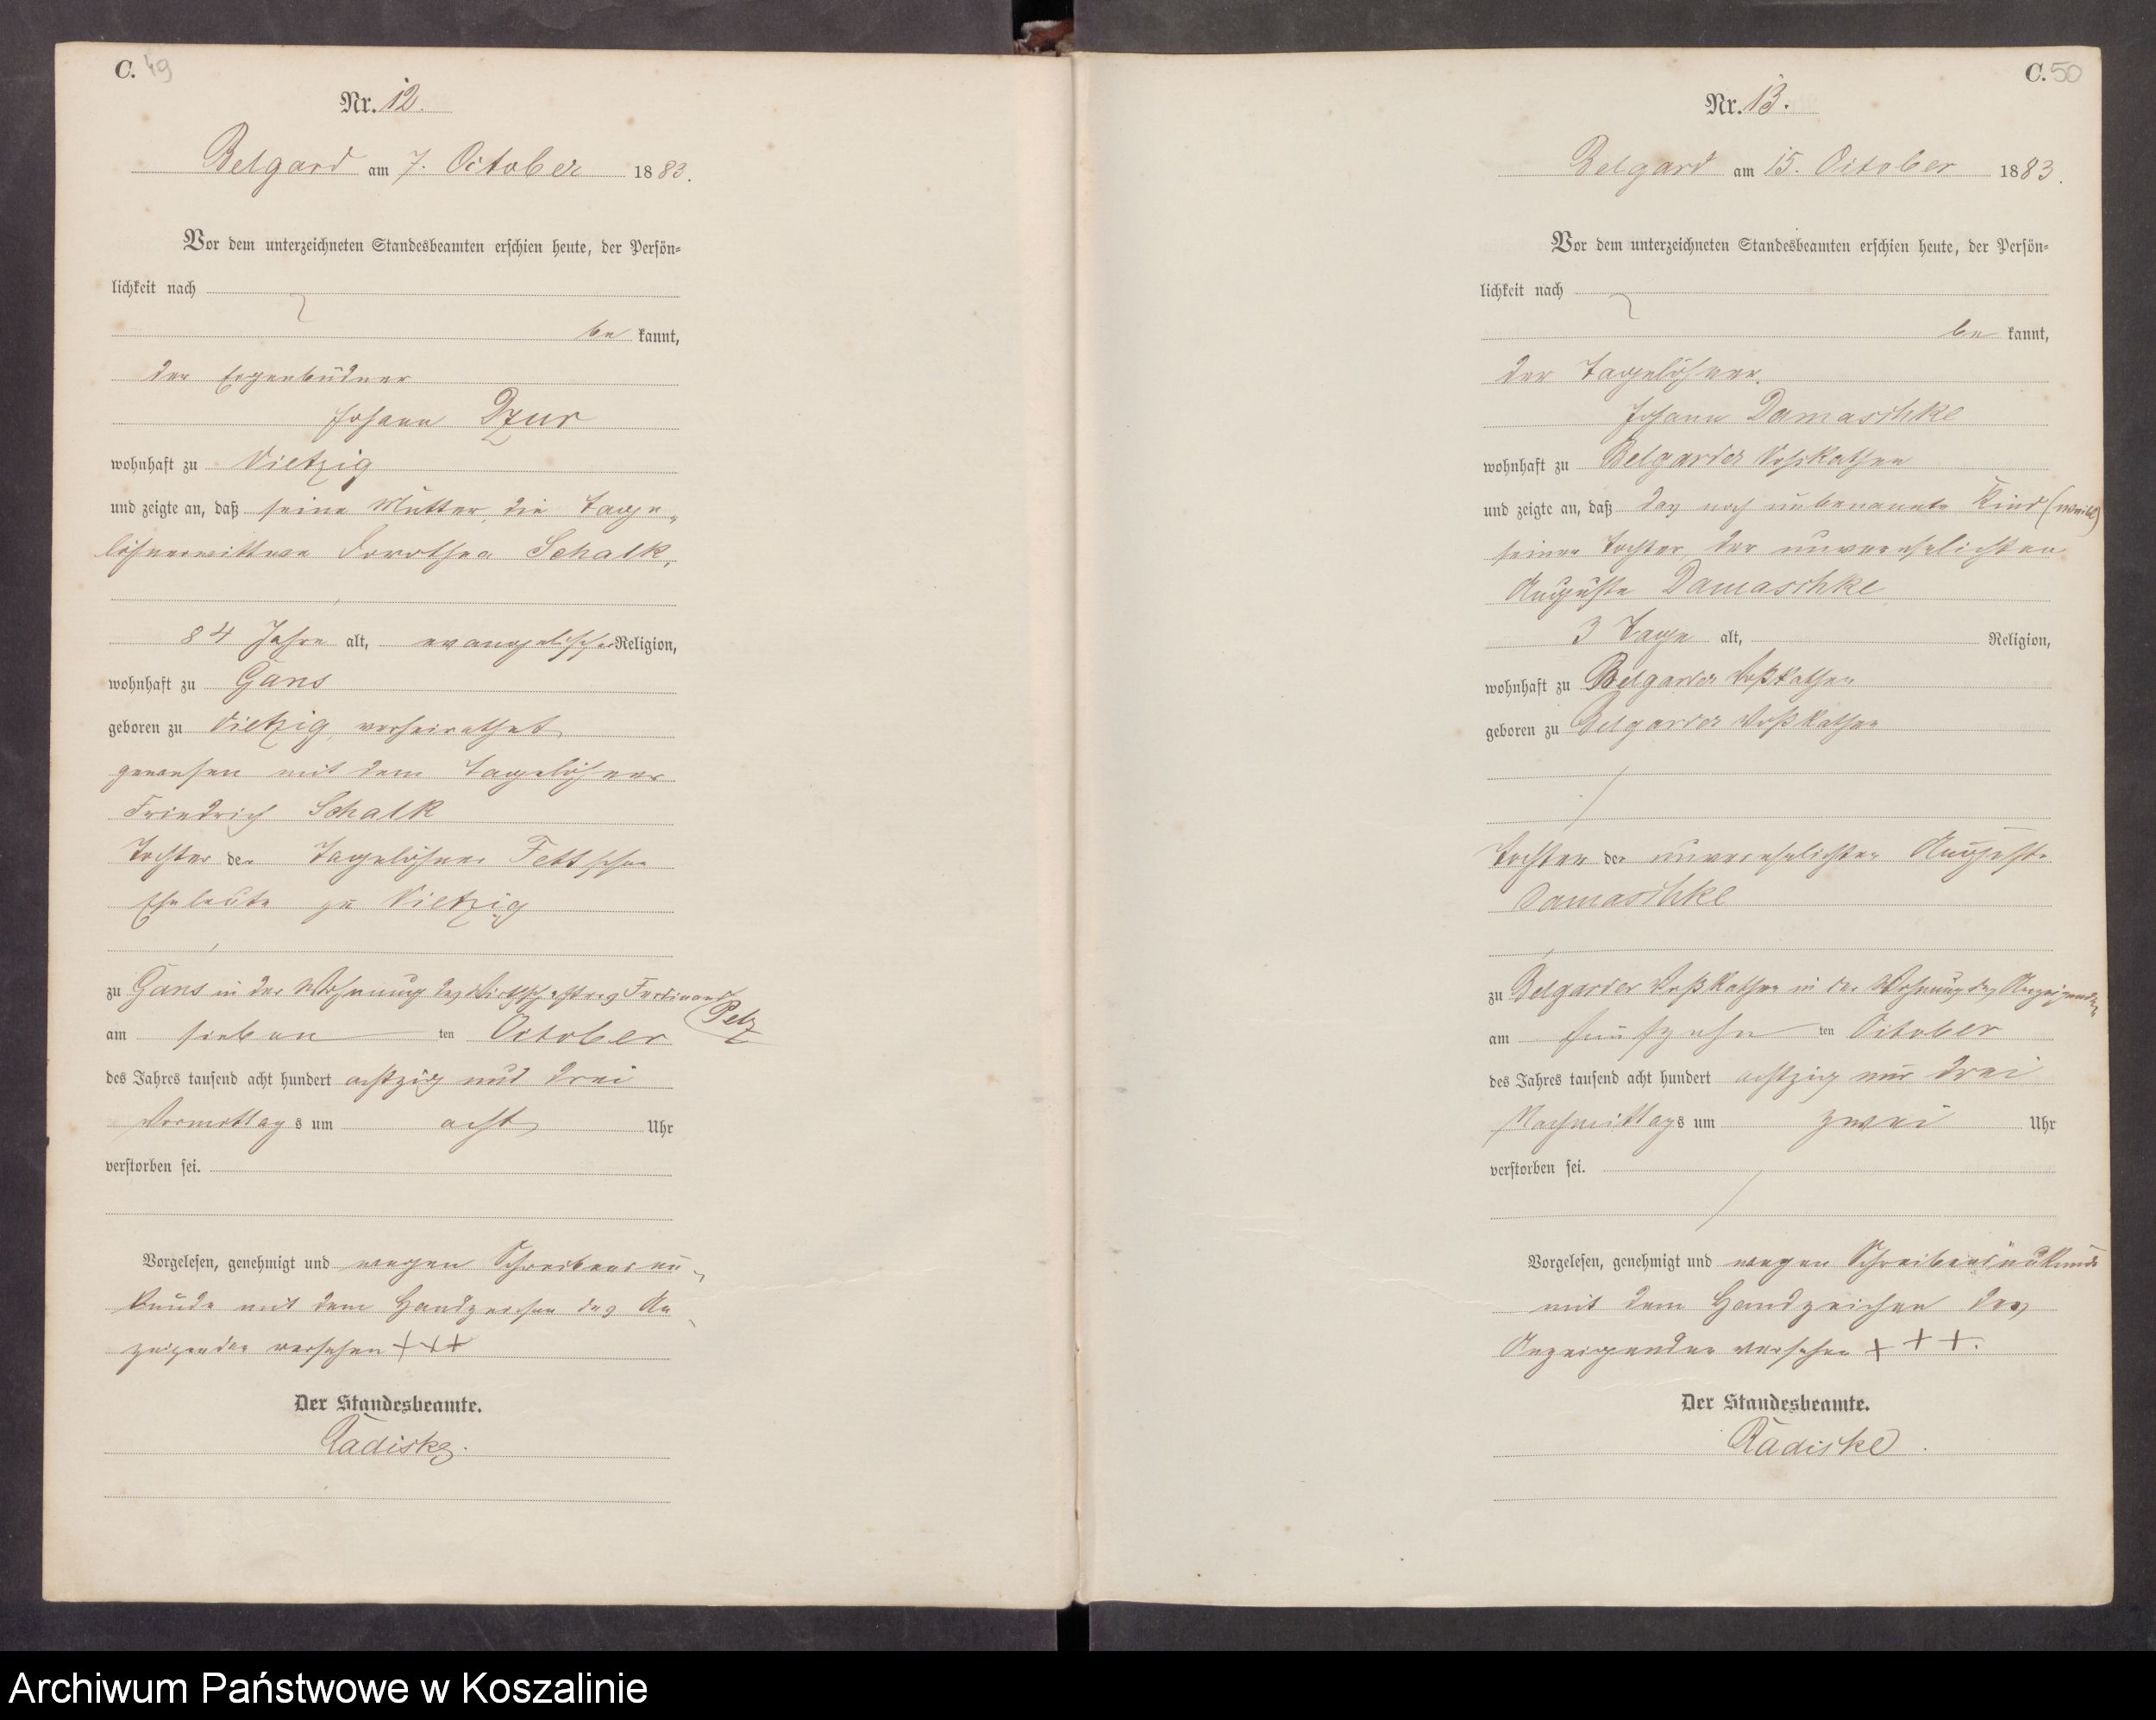 C. 49
Nr. 12.
Belgard am 7. October 1883.
Vor dem unterzeichneten Standesbeamten erschien heute, der Persön-
lichkeit nach
be kannt,
der Eigenbüdner
Johann Dzur
wohnhaft zu Vietzig
und zeigte an, daß seine Mutter, die Tage-
löhnerwittwe Dorothea Schalk,
84 Jahre alt, evangelischer Religion,
wohnhaft zu Gans
geboren zu Vietzig, verheirathet
gewesen mit dem Tagelöhner
Friedrich Schalk
Tochter der Tagelöhner Fettschen
Eheleute zu Vietzig
zu Gans in der Wohnung des Ferdinand
Pelz
am sieben ten October
des Jahres tausend acht hundert achtzig und drei
Vormittags um acht Uhr
verstorben sei.
Vorgelesen, genehmigt und wegen Schreibensun-
kunde mit dem Handzeichen des An-
zeigenden versehen +++
Der Standesbeamte.
Radiske.
C. 50
Nr. 13.
Belgard am 15. October 1883.
Vor dem unterzeichneten Standesbeamten erschien heute, der Persön-
lichkeit nach
be kannt,
der Tagelöhner
Johann Damaschke
wohnhaft zu Belgarder Voßkathen
und zeigte an, daß das noch unbenannte Kind (weibl)
seiner Tochter, der unverehelichten
Auguste Damaschke
3 Tage alt, Religion,
wohnhaft zu Belgarder Voßkathen
geboren zu Belgarder Voßkathen
Tochter der unverehelichten Auguste
Damaschke
zu Belgarder Voßkathen in der Wohnung des Anzeigenden
am fünfzehn ten October
des Jahres tausend acht hundert achtzig und drei
Nachmittags um zwei Uhr
verstorben sei.
Vorgelesen, genehmigt und wegen Schreibensunkunde
mit dem Handzeichen des
Anzeigenden versehen + + +.
Der Standesbeamte.
Radiske.
Archiwum Państwowe w Koszalinie